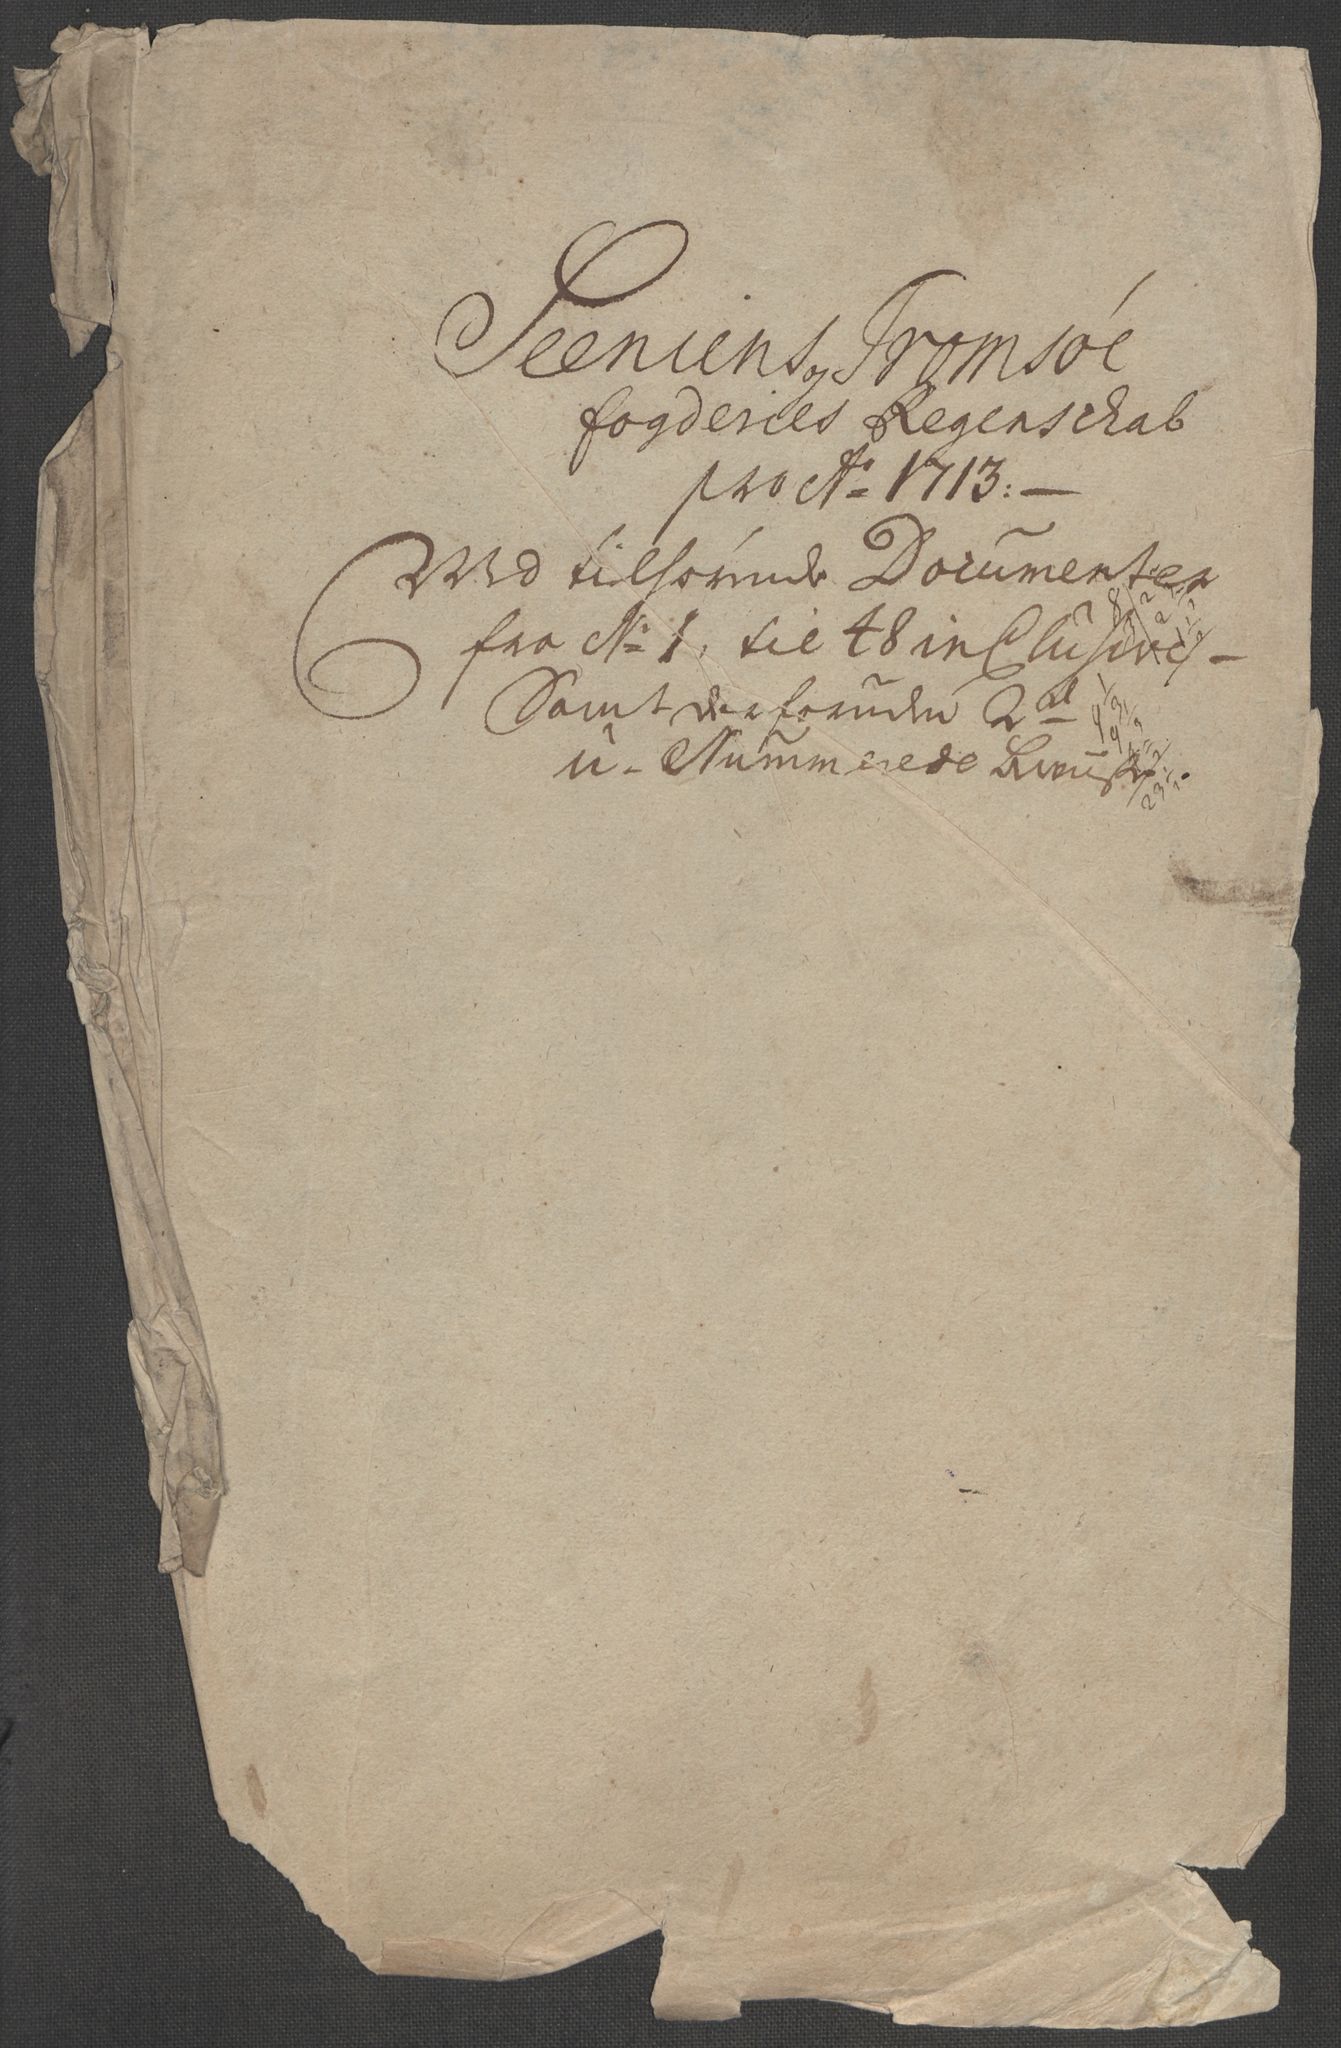 Seeniens og Tromsøe
fogderies Regenschab
pro Aº 1713:—
Med tilhørende Documenter
fra Nº 1, til 48 inClusive –
Samt der foruden 2de
u-Nummerede